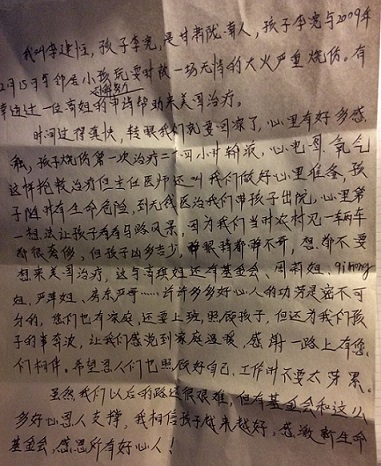 我叫李建恒，孩子李亮，是甘肃陇南人，孩子李亮与2009年
2月15号和邻居小孩玩耍时被一场无情的大火严重烧伤。有
幸通过一位奇姐的申请帮助来美国治疗。
时间过得真快，转眼我们就要回家了，心里有好多感
触，孩子烧伤第一次治疗二十四小时输液，心电图，氧气
这样抢救治疗但主任医师还叫我们做好心里准备，孩
子随时有生命危险，到无钱医治我们带孩子出院，心里第
一想法让孩子看看马路风景，因为我们当时农村见一辆车
都很奢侈，但孩子凶多吉少，带眼睛都睁不开，想都不要
想来美国治疗，这与奇缘姐还有基金会，周莉姐，qinong
姐，严萍姐，房东严哥……许许多多好心人的功劳是密不可
分的，您们也有家庭，还要上班，照顾孩子，但还为我们孩
子的事奔波，让我们感觉到家庭温暖，感谢一路上有您
们相伴。希望恩人们也照顾好自己，工作时不要太劳累。
虽然我们以后的路还很艰难，但有基金会和这么
多好心恩人支撑，我相信孩子越来越好，感激新生命
基金会，感恩所有好心人！